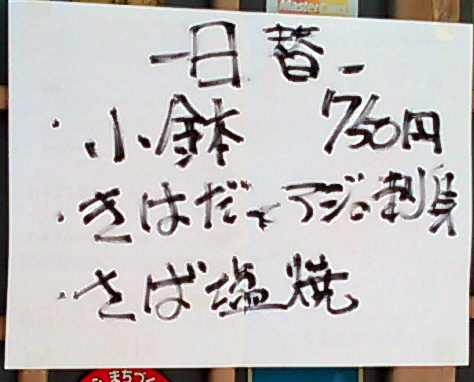 MasterCard
一日替
・小鉢 750円
・きはだとアジの刺身
・さば塩焼
まちづ